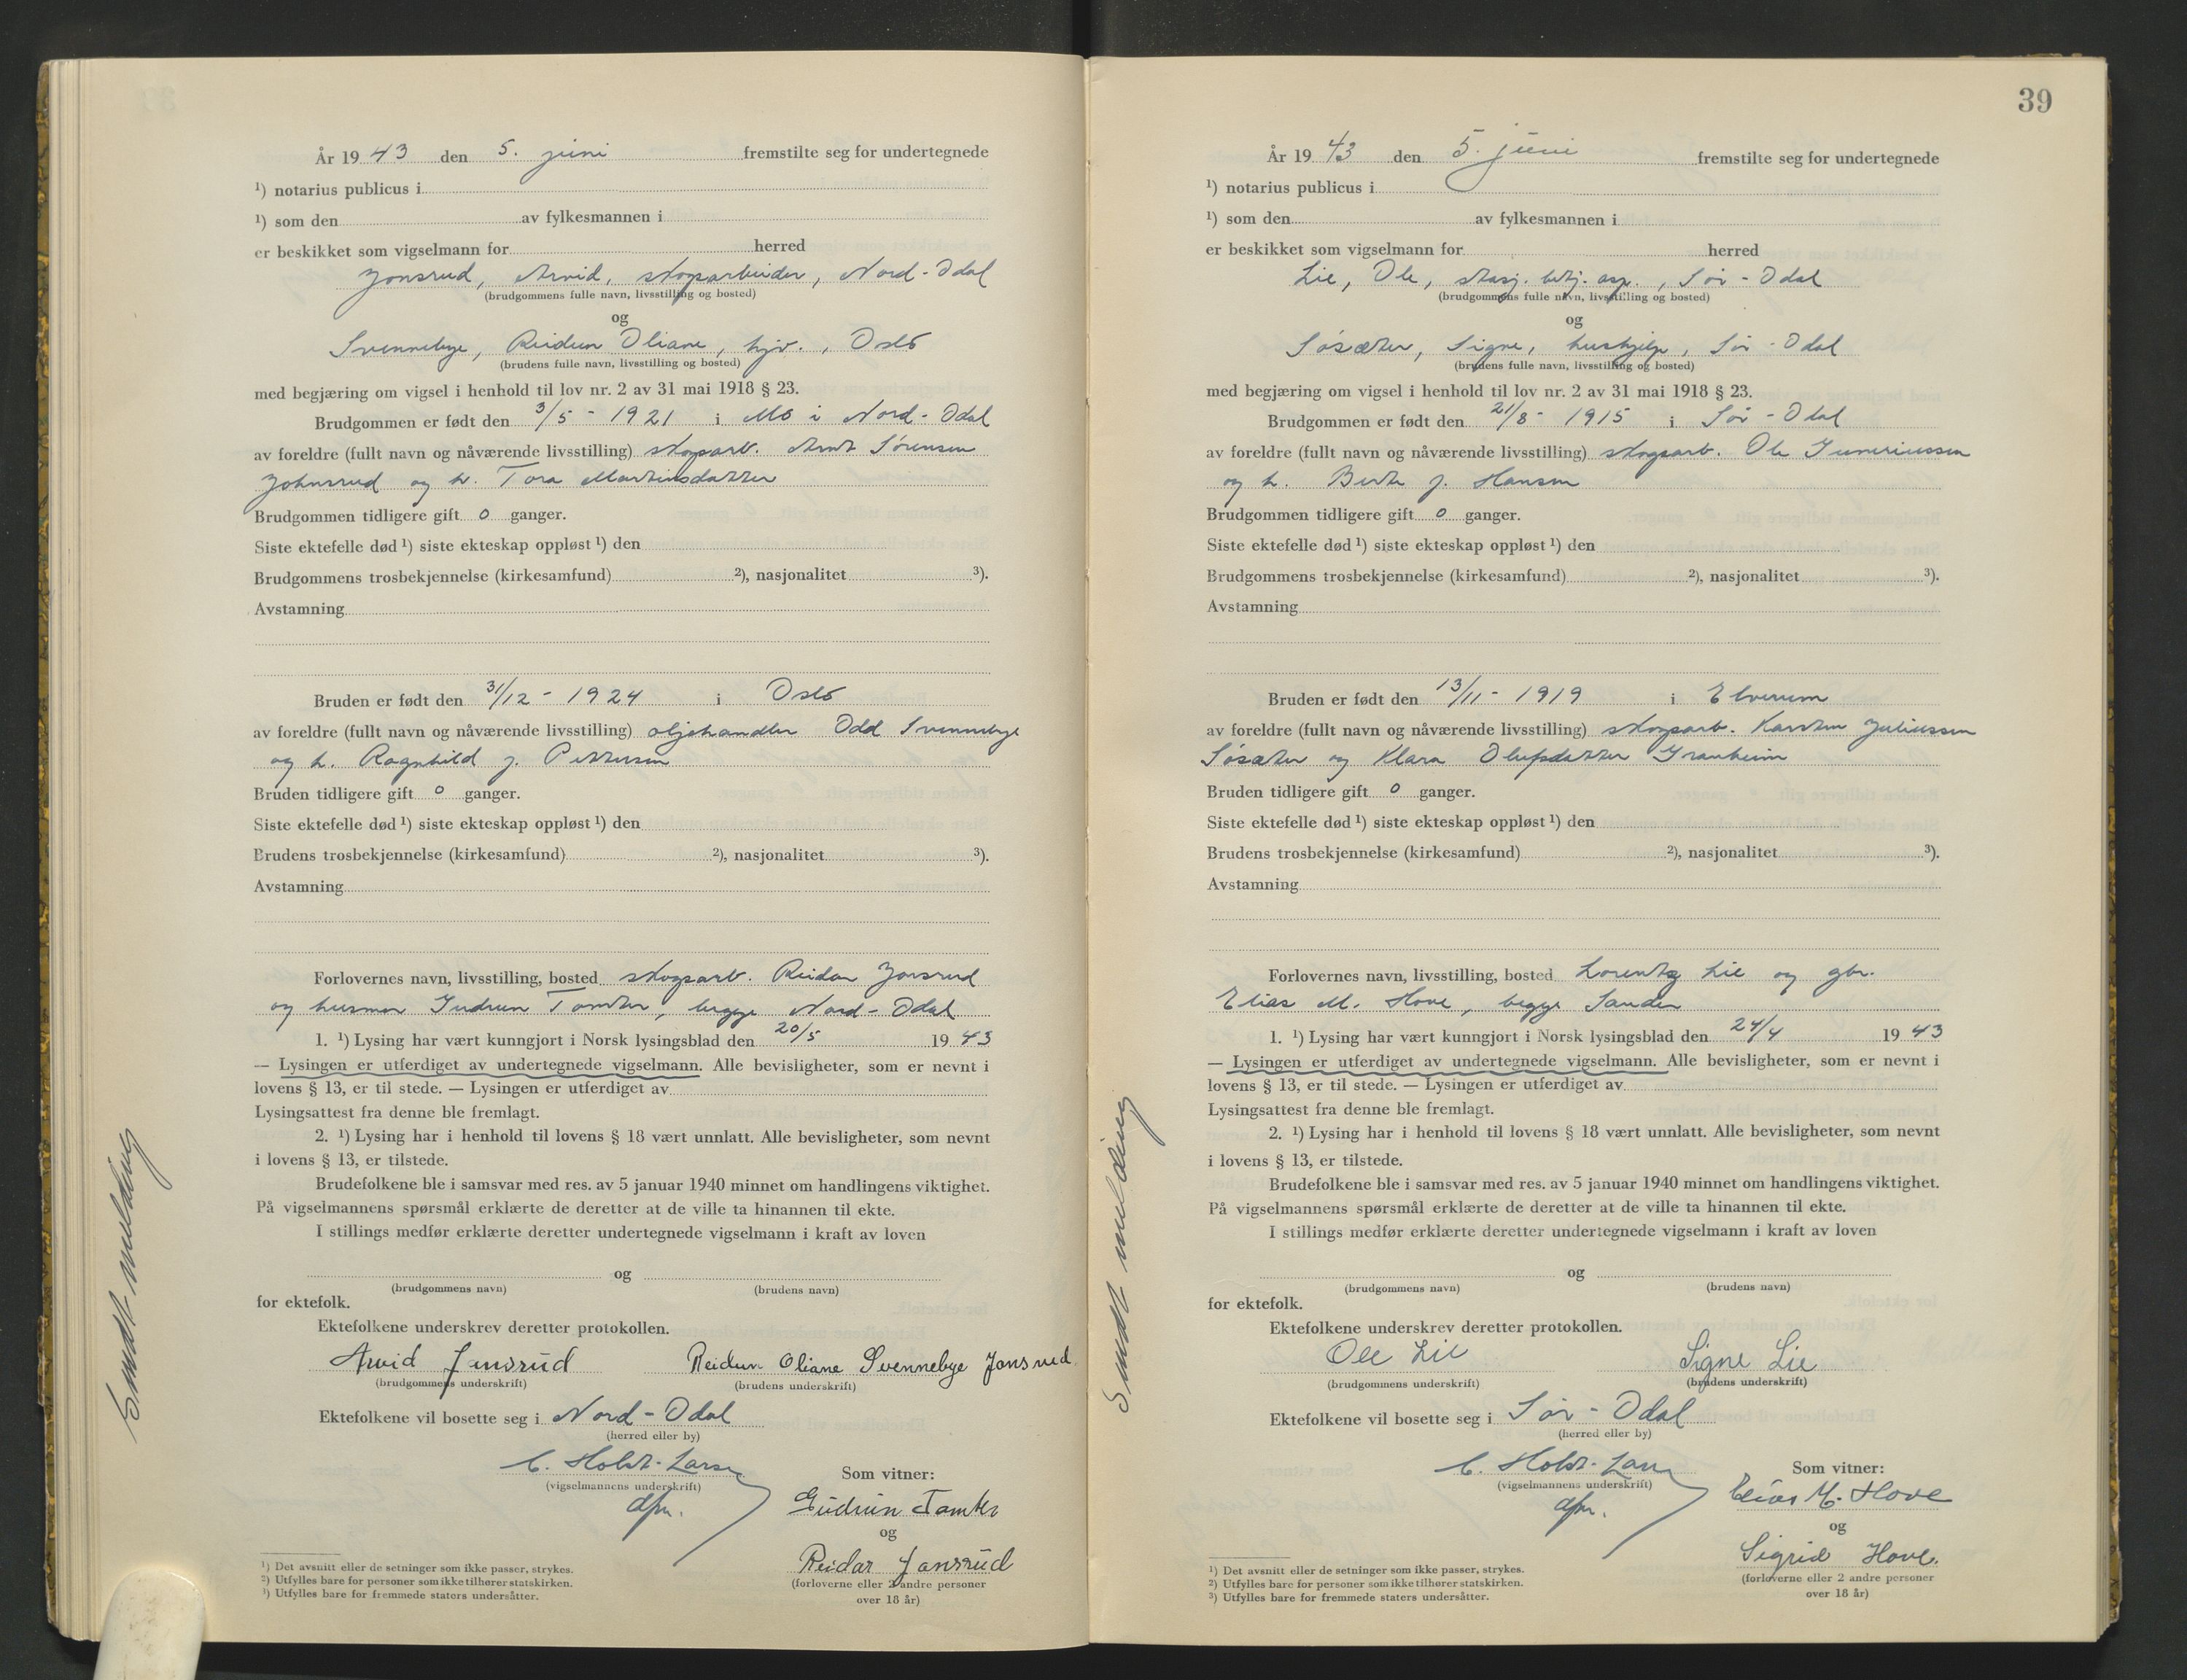 År 19 43 den 5. juni fremstilte seg for undertegnede
¹) notarius publicus i
¹) som den av fylkesmannen i
er beskikket som vigselmann for herred
Jonsrud, Arvid, skogsarbeider, Nord-Odal
(brudgommens fulle navn, livsstilling og bosted)
og
Svennebye, Reidun Oliane, hjv., Oslo
(brudens fulle navn, livsstilling og bosted)
med begjæring om vigsel i henhold til lov nr. 2 av 31 mai 1918 § 23.
Brudgommen er født den 3/5 - 1921 i Mo i Nord-Odal
av foreldre (fullt navn og nåværende livsstilling) skogsarb. Arnt Sørensen
Johnsrud og h. Tora Martinsdatter
Brudgommen tidligere gift 0 ganger.
Siste ektefelle død ¹) siste ekteskap oppløst ¹) den
Brudgommens trosbekjennelse (kirkesamfund) ²), nasjonalitet ³).
Avstamning
Bruden er født den 31/12 - 1924 i Oslo
av foreldre (fullt navn og nåværende livsstilling) oljehandler Odd Svennebye
og h. Ragnhild f. Pettersen
Bruden tidligere gift 0 ganger.
Siste ektefelle død ¹) siste ekteskap oppløst ¹) den
Brudens trosbekjennelse (kirkesamfund) ²), nasjonalitet ³).
Avstamning
Forlovernes navn, livsstilling, bosted skogsarb. Reidar Jonsrud
og husmor Gudrun Tomter, begge Nord-Odal
1. ¹) Lysing har vært kunngjort i Norsk lysingsblad den 20/5 19 43
— Lysingen er utferdiget av undertegnede vigselmann. Alle bevisligheter, som er nevnt i
lovens § 13, er til stede. — Lysingen er utferdiget av
Lysingsattest fra denne ble fremlagt.
2. ¹) Lysing har i henhold til lovens § 18 vært unnlatt. Alle bevisligheter, som nevnt
i lovens § 13, er tilstede.
Brudefolkene ble i samsvar med res. av 5 januar 1940 minnet om handlingens viktighet.
På vigselmannens spørsmål erklærte de deretter at de ville ta hinannen til ekte.
I stillings medfør erklærte deretter undertegnede vigselmann i kraft av loven
og
(brudgommens navn) (brudens navn)
for ektefolk.
Ektefolkene underskrev deretter protokollen.
Arvid Jonsrud Reidun Oliane Svennebye Jonsrud
(brudgommens underskrift) (brudens underskrift)
Ektefolkene vil bosette seg i Nord-Odal
(herred eller by)
C. Holst-Larsen
(vigselmannens underskrift)
dfm.
Som vitner:
Gudrun Tomter
og
Reidar Jonsrud
(forloverne eller 2 andre personer
over 18 år)
¹) Det avsnitt eller de setninger som ikke passer, strykes.
²) Utfylles bare for personer som ikke tilhører statskirken.
³) Utfylles bare for fremmede staters undersåtter.
Sendt melding
39
År 19 43 den 5. juni fremstilte seg for undertegnede
¹) notarius publicus i
¹) som den av fylkesmannen i
er beskikket som vigselmann for herred
Lie, Ole, stasj. betj. asp., Sør-Odal
(brudgommens fulle navn, livsstilling og bosted)
og
Søsæter, Signe, hushjelp, Sør-Odal
(brudens fulle navn, livsstilling og bosted)
med begjæring om vigsel i henhold til lov nr. 2 av 31 mai 1918 § 23.
Brudgommen er født den 21/8 - 1915 i Sør-Odal
av foreldre (fullt navn og nåværende livsstilling) skogsarb. Ole Guneriussen
og h. Berte f. Hansen
Brudgommen tidligere gift 0 ganger.
Siste ektefelle død ¹) siste ekteskap oppløst ¹) den
Brudgommens trosbekjennelse (kirkesamfund) ²), nasjonalitet ³).
Avstamning
Bruden er født den 13/11 - 1919 i Elverum
av foreldre (fullt navn og nåværende livsstilling) skogsarb. Karsten Juliussen
Søsæter og Klara Olufsdatter Granheim
Bruden tidligere gift 0 ganger.
Siste ektefelle død ¹) siste ekteskap oppløst ¹) den
Brudens trosbekjennelse (kirkesamfund) ²), nasjonalitet ³).
Avstamning
Forlovernes navn, livsstilling, bosted Lorentz Lie og gbr.
Elias M. Hove, begge Sander
1. ¹) Lysing har vært kunngjort i Norsk lysingsblad den 24/4 19 43
— Lysingen er utferdiget av undertegnede vigselmann. Alle bevisligheter, som er nevnt i
lovens § 13, er til stede. — Lysingen er utferdiget av
Lysingsattest fra denne ble fremlagt.
2. ¹) Lysing har i henhold til lovens § 18 vært unnlatt. Alle bevisligheter, som nevnt
i lovens § 13, er tilstede.
Brudefolkene ble i samsvar med res. av 5 januar 1940 minnet om handlingens viktighet.
På vigselmannens spørsmål erklærte de deretter at de ville ta hinannen til ekte.
I stillings medfør erklærte deretter undertegnede vigselmann i kraft av loven
og
(brudgommens navn) (brudens navn)
for ektefolk.
Ektefolkene underskrev deretter protokollen.
Ole Lie Signe Lie
(brudgommens underskrift) (brudens underskrift)
Ektefolkene vil bosette seg i Sør-Odal
(herred eller by)
C. Holst-Larsen
(vigselmannens underskrift)
dfm.
Som vitner:
Elias M. Hove
og
Sigrid Hove.
(forloverne eller 2 andre personer
over 18 år)
¹) Det avsnitt eller de setninger som ikke passer, strykes.
²) Utfylles bare for personer som ikke tilhører statskirken.
³) Utfylles bare for fremmede staters undersåtter.
Sendt melding